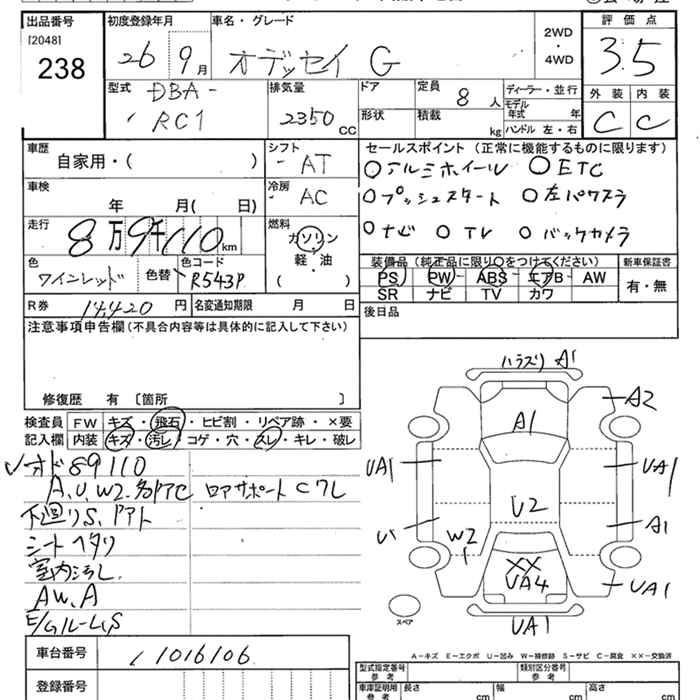 出品番号
[2048]
238
初度登録年月
26 9月
車名・グレード
オデッセイ G
2WD
・
4WD
評価点
3.5
外装 内装
C C
型式
DBA-
RC1
排気量
2350 CC
ドア
形状
定員
8 人
積載
kg
ディーラー・並行
モデル
年式 年
ハンドル 左・右
車歴
自家用・( )
シフト
AT
車検
年 月( 日)
冷房
AC
走行
8万9千110km
燃料
ガソリン
軽・油
( )
色
ワインレッド
色替
色コード
R543P
R券 14,420 円
名変通知期限 月 日
セールスポイント(正常に機能するものに限ります)
○アルミホイール ○ETC
○プッシュスタート ○左パワスラ
○ナビ ○TV ○バックカメラ
装備品(純正品に限り○をつけてください)
PS PW ABS エアB AW
SR ナビ TV カワ
新車保証書
有・無
後日品
注意事項申告欄(不具合内容等は具体的に記入して下さい)
修復歴 有 〔箇所 〕
検査員
記入欄
FW キズ・飛石・ヒビ割・リペア跡・×要
内装 キズ・汚レ・コゲ・穴・スレ・キレ・破レ
オド89110
A、U、W2、多アテC ロアサポートCワレ
下廻りS、ドアト
シートヘタリ
室内汚し
AW、A
E/Gルーム、S
車台番号 1016106
登録番号
ハラズリ A1
A2
A1
UA1 UA1
U2
A1
W2
XX
UA4
UA1
UA1
スペア
A-キズ E-エクボ U-凹み W-補修跡 S-サビ C-腐食 XX-交換済
型式指定番号
参考
類別区分番号
参考
車庫証明用
参考
長さ cm
幅 cm
高さ cm